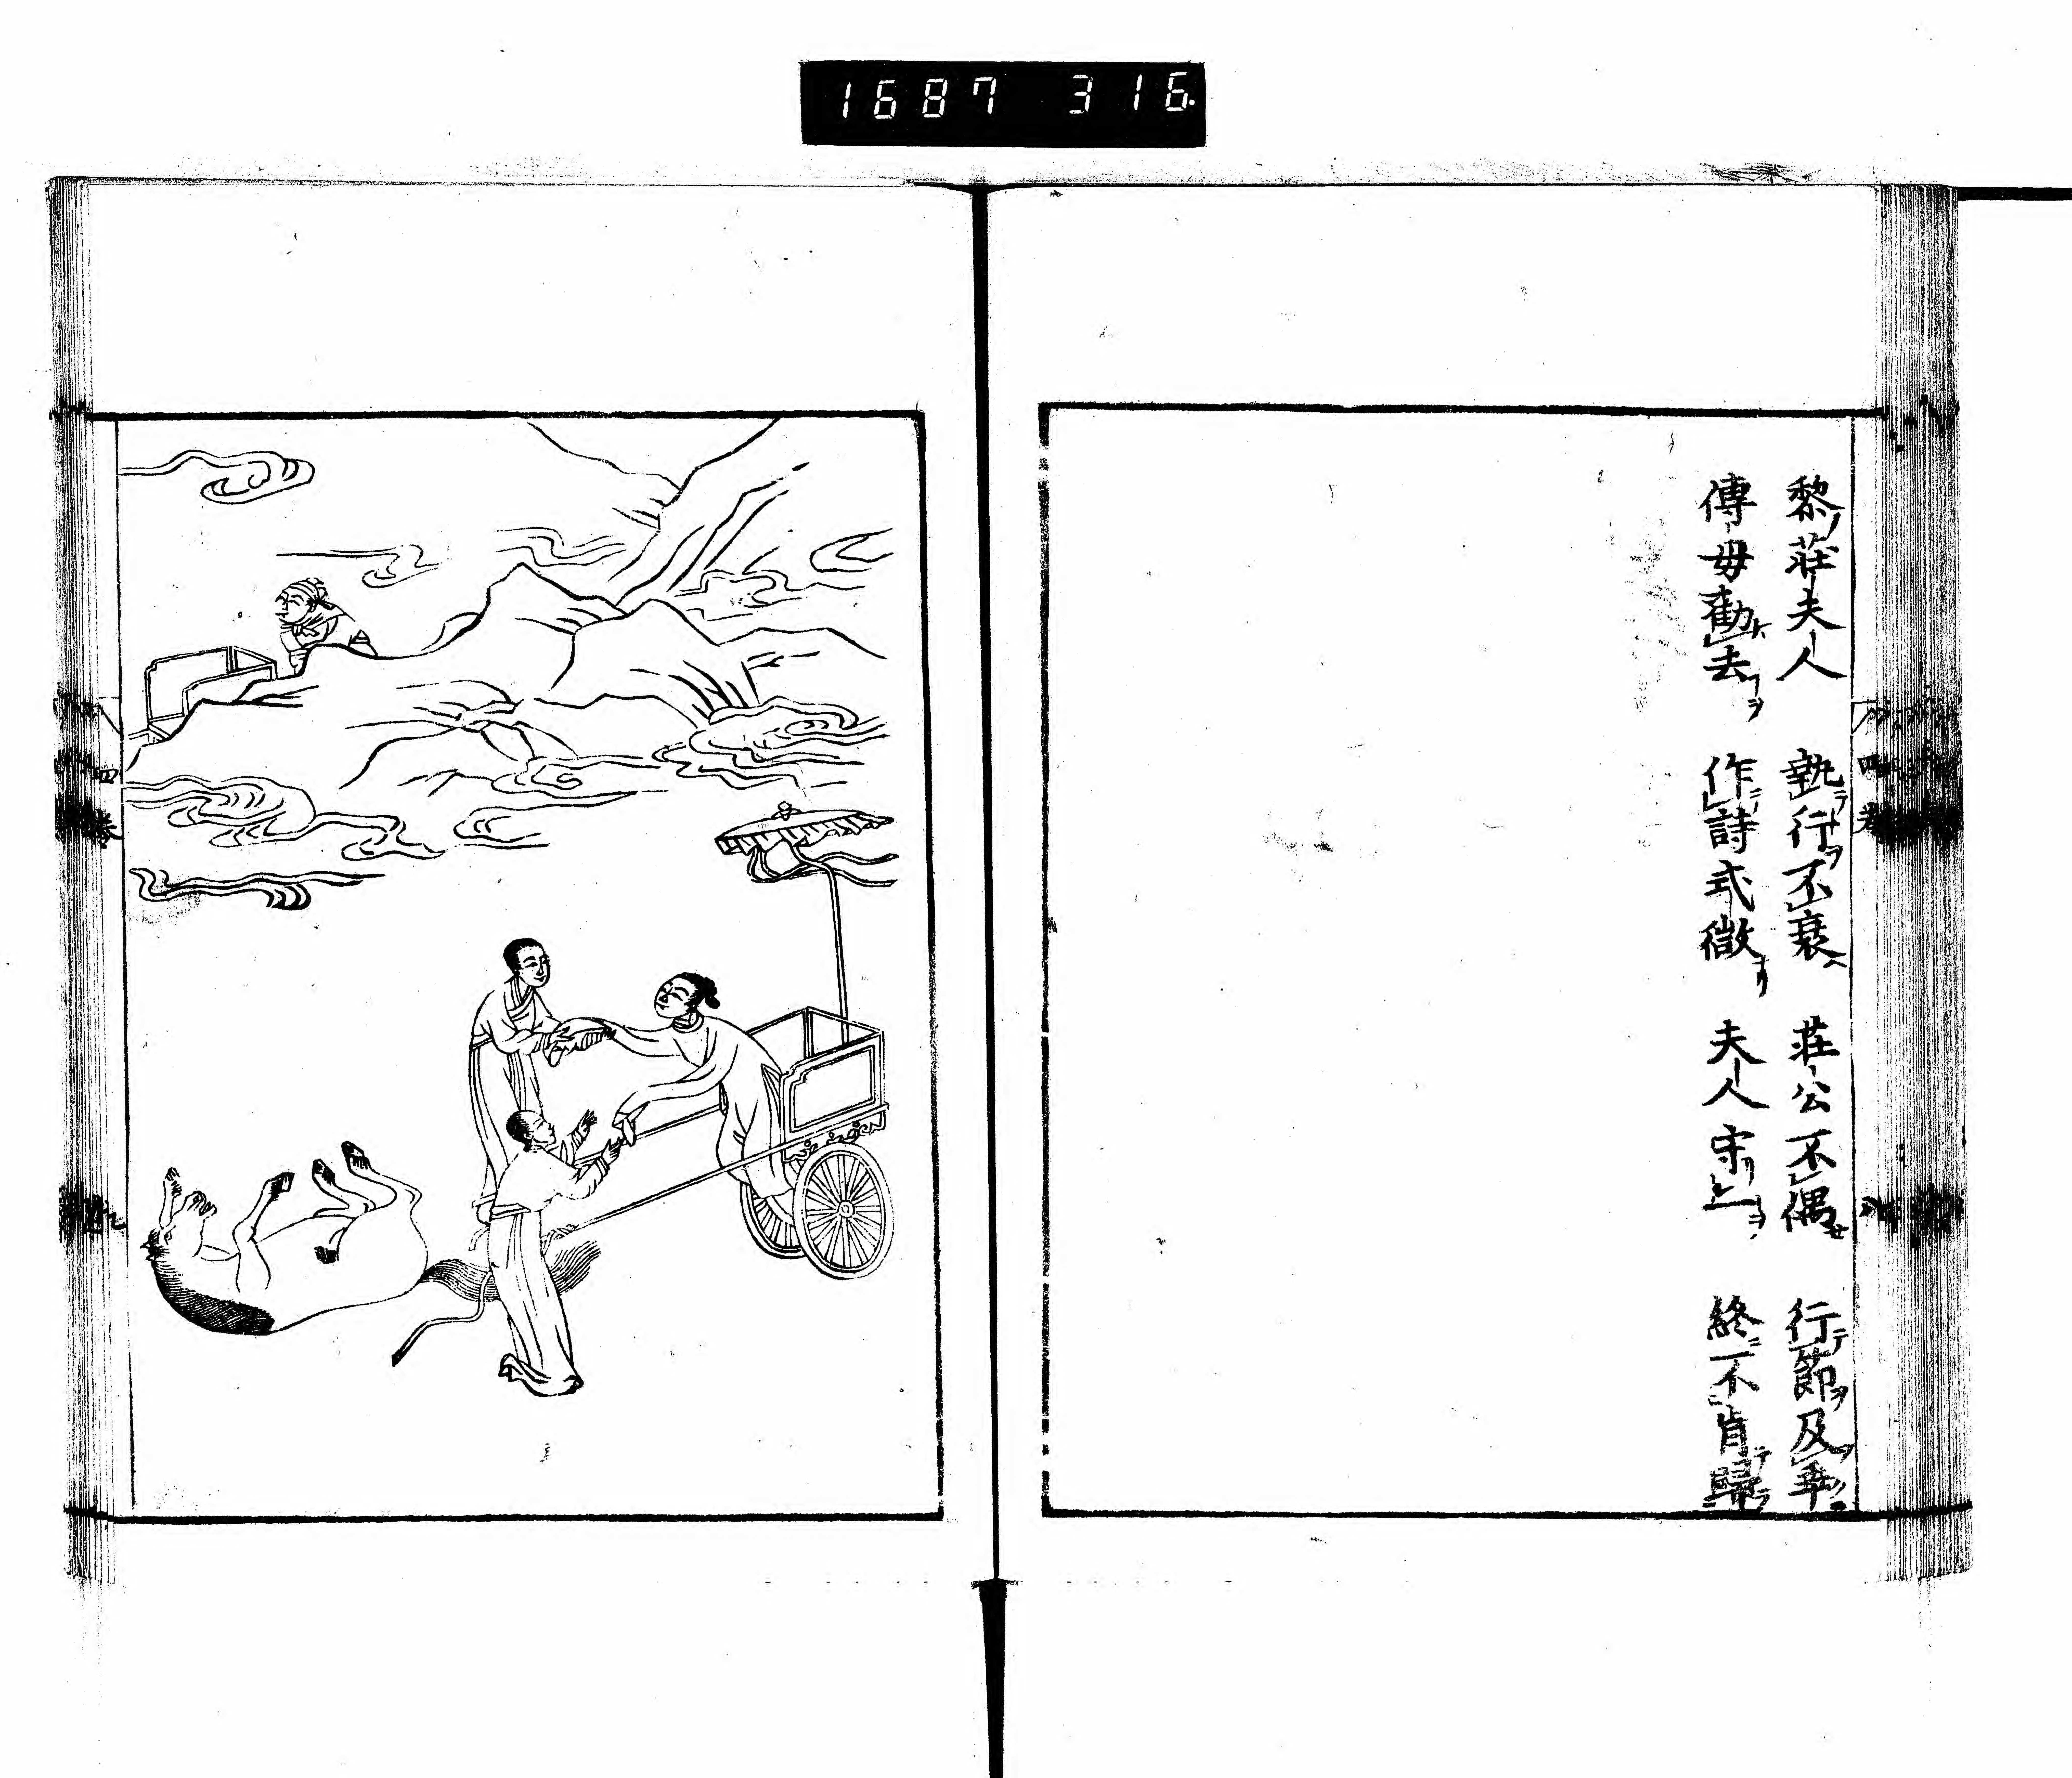 1687 316.
黎莊夫人 執行不衰 莊公不偶 行節反乖
傅母勸去 作詩式微 夫人守一 終不肯歸